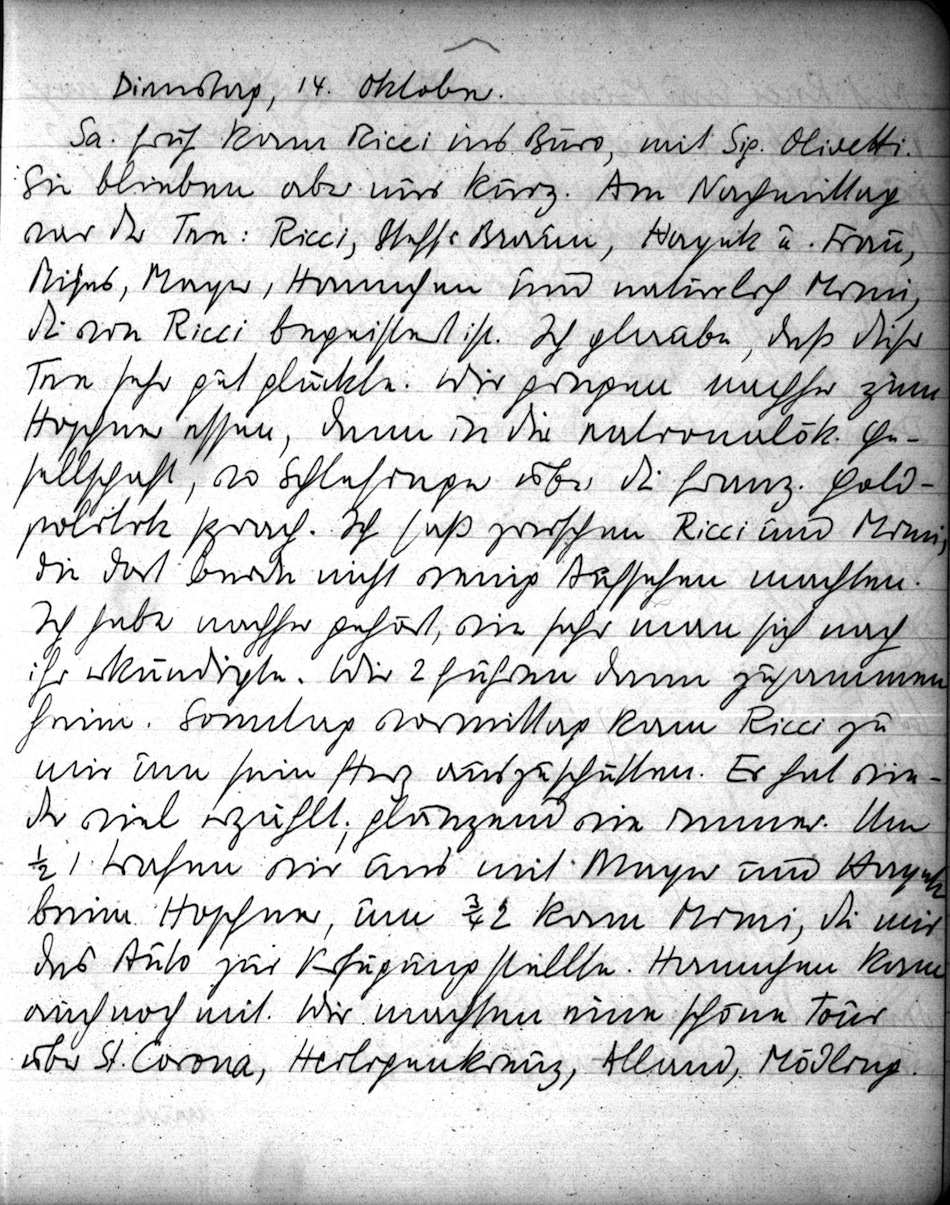 Dienstag, 14. Oktober.
Sa. früh kam Ricci ins Büro, mit Sig. Olivetti.
Sie blieben aber nur kurz. Am Nachmittag
war der Tee: Ricci, Steffi Braun, Hayek u. Frau,
Mises, Mayer, Hannchen und natürlich Mimi,
die von Ricci begeistert ist. Ich glaube, daß dieser
Tee sehr gut glückte. Wir gingen nachher zum
Hopfner essen, dann in die nationalök. Ge-
sellschaft, wo Schlesinger über die franz. Gold-
politik sprach. Ich saß zwischen Ricci und Mimi,
die dort beide nicht wenig Aufsehen machten.
Ich habe nachher gehört, wie sehr man sich nach
ihr erkundigte. Wir 2 fuhren dann zusammen
heim. Sonntag vormittag kam Ricci zu
mir um sein Herz auszuschütten. Er hat wie-
der viel erzählt; glänzend wie immer. Um
½ 1 trafen wir uns mit Mayer und Hayek
beim Hopfner, um ¾ 2 kam Mimi, die mir
das Auto zur Verfügung stellte. Hannchen kam
auch noch mit. Wir machten eine schöne Tour
über St. Corona, Heiligenkreuz, Alland, Mödling.